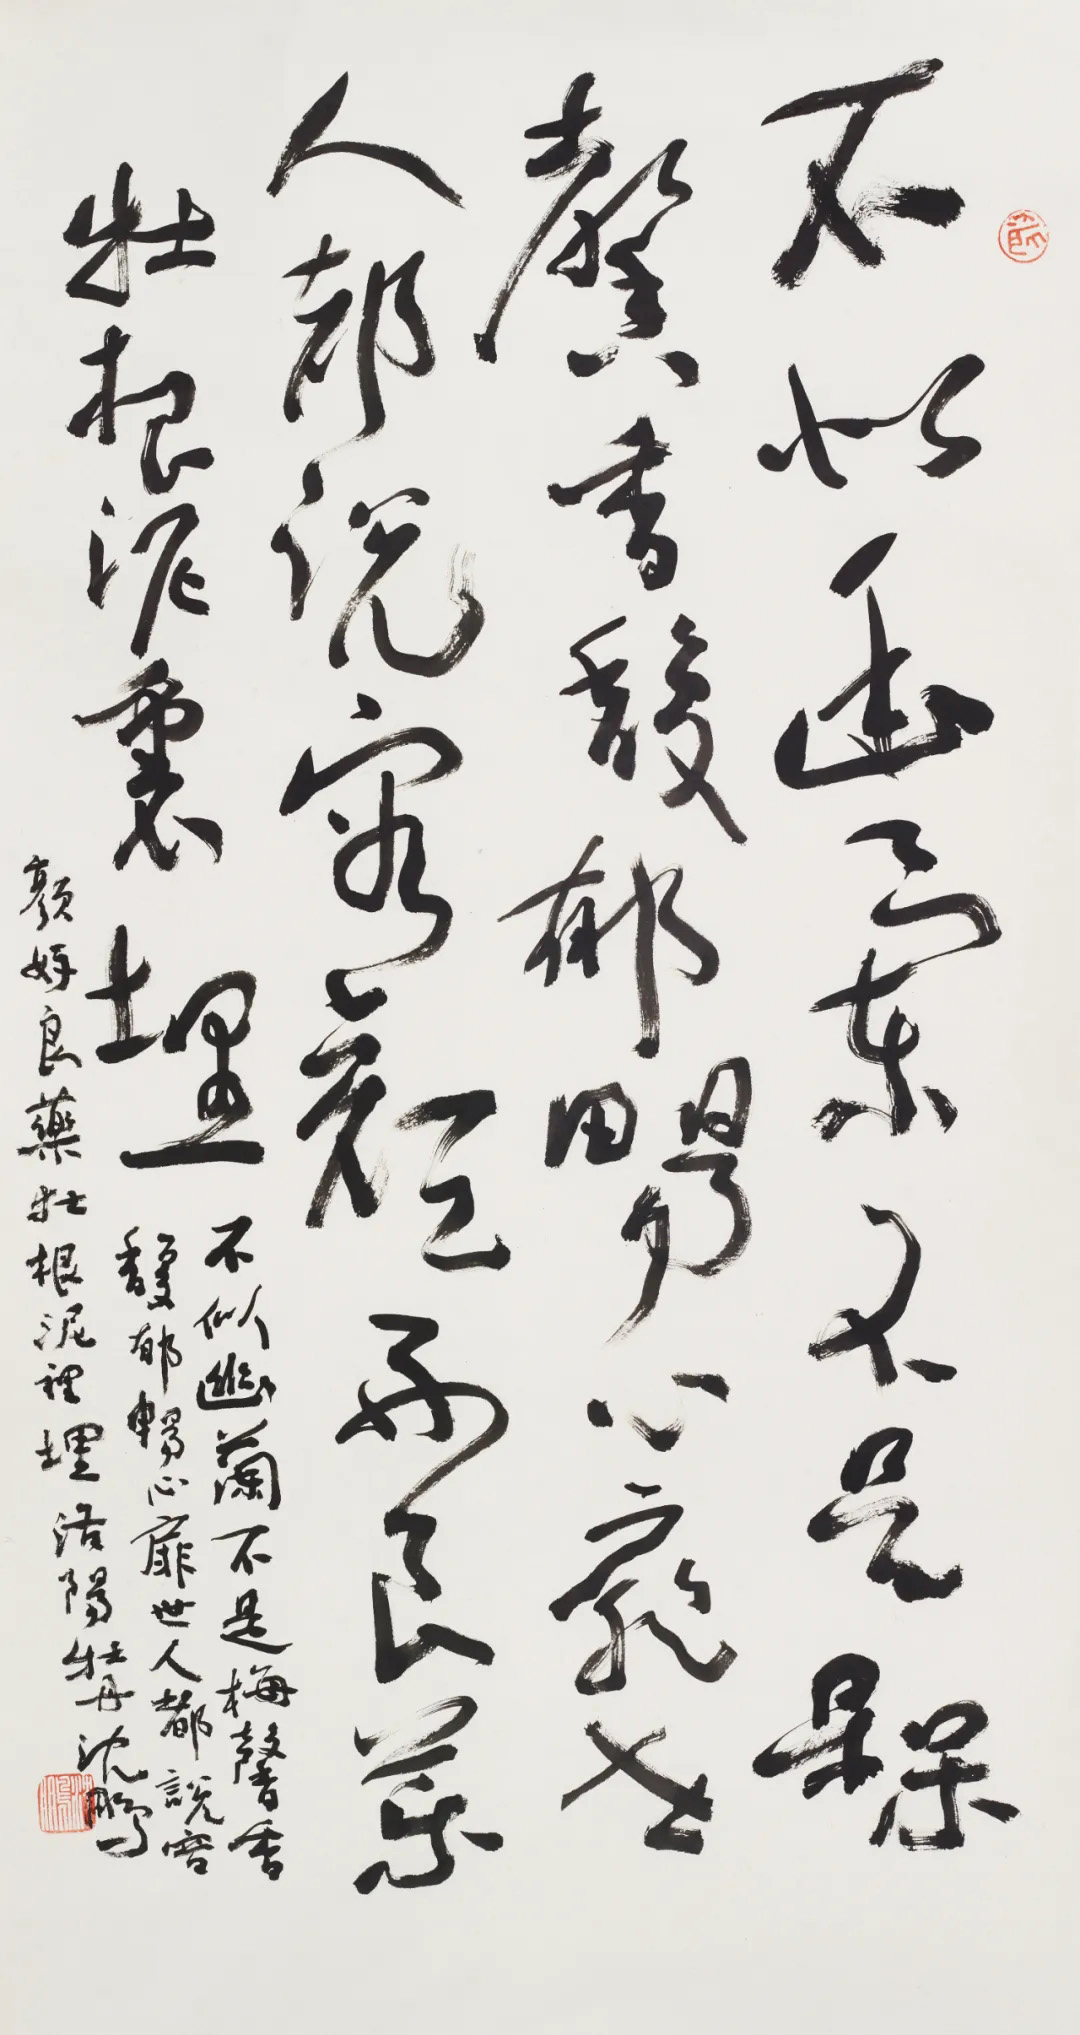 不似幽蘭不是槑
馨香馥郁畼心扉世
人都說容顏好良藥
牡根泥裏埋
不似幽蘭不是梅馨香
馥郁暢心扉世人都說容
顏好良藥牡根泥裡埋洛陽牡丹沈鵬